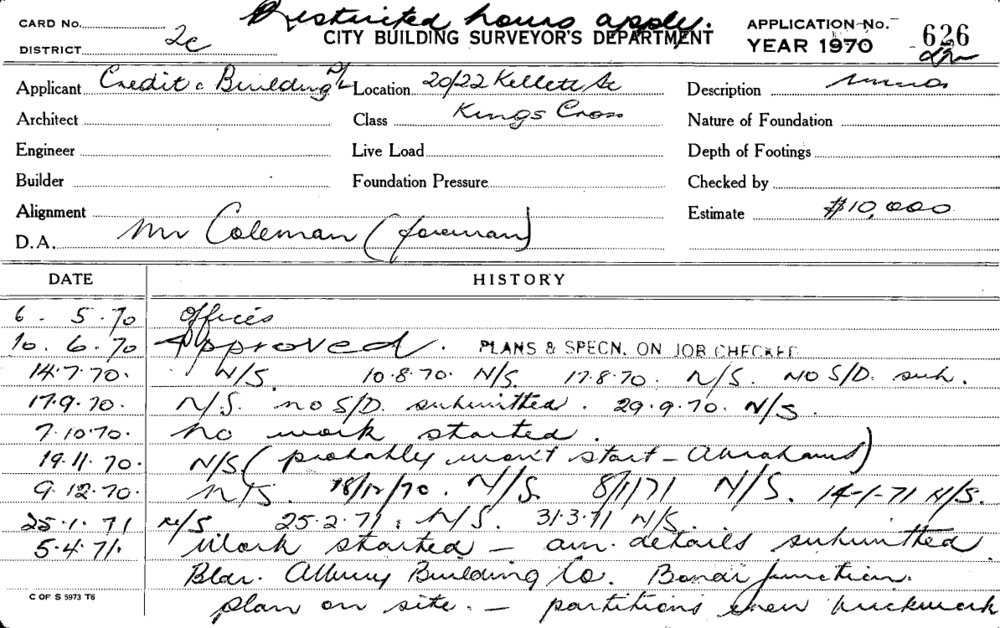 Restricted hours apply.
CARD No. CITY BUILDING SURVEYOR'S DEPARTMENT APPLICATION No. 626
DISTRICT 2c YEAR 1970
Applicant Credit & Building P/L Location 20/22 Kellett St Description
Architect Class Kings Cross Nature of Foundation
Engineer Live Load Depth of Footings
Builder Foundation Pressure Checked by
Alignment Estimate $10,000
D.A. Mr Coleman (foreman)
DATE HISTORY
6. 5. 70 Offices
10. 6. 70 Approved. PLANS & SPECN. ON JOB CHECKED
14.7.70. N/S. 10.8.70. N/S. 17.8.70. N/S. NO S/D. sub.
17.9.70. N/S. no S/D. submitted. 29.9.70. N/S.
7.10.70. No work started.
19.11.70. N/S (probably won't start - Abrahams)
9.12.70. N/S. 18/12/70. N/S. 8/1/71 N/S. 14-1-71 N/S.
25.1.71 N/S 25.2.71. N/S. 31.3.71 N/S.
5.4.71. Work started - am. details submitted
Bldr. Albury Building Co. Bondi Junction.
C OF S 5973 T6 plan on site. - partitions & new brickwork